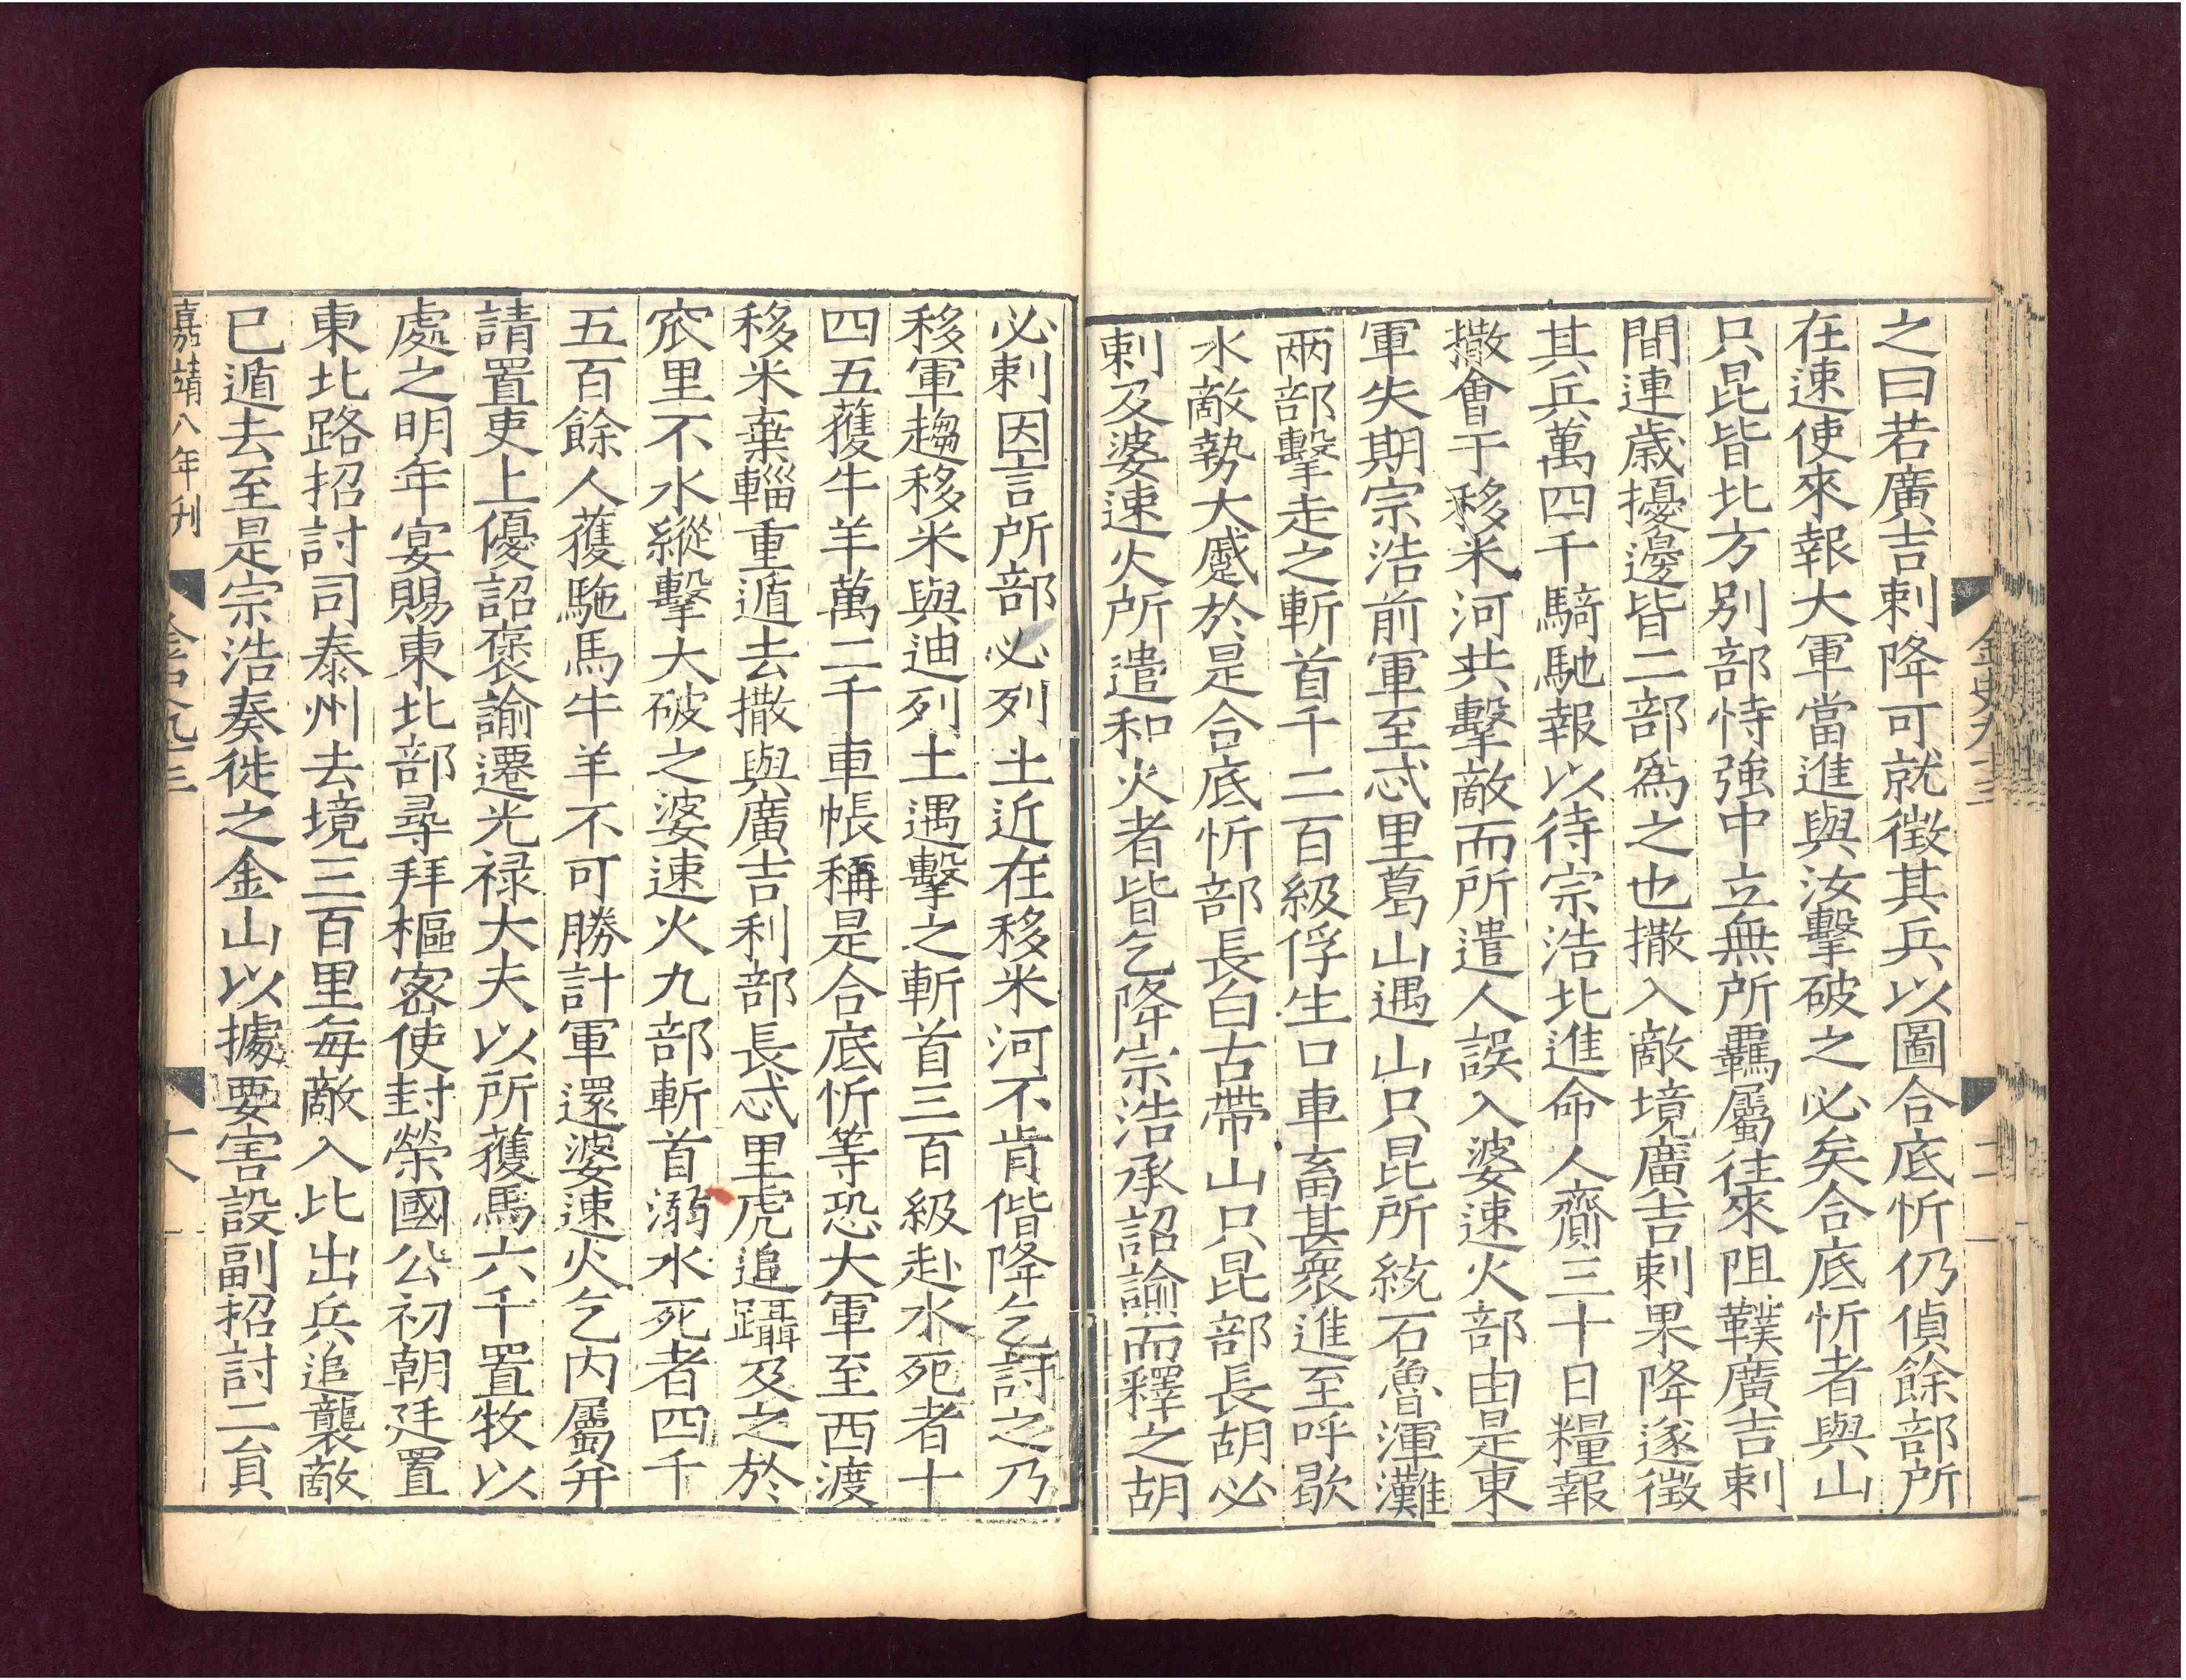 之曰若廣吉剌降可就徵其兵以圖合底忻仍偵餘部所
在速使來報大軍當進與汝擊破之必矣合底忻者與山
只昆皆北方别部恃強中立無所羈屬往來阻䪁廣吉剌
間連歳擾邊皆二部爲之也撒入敵境廣吉剌果降遂徵
其兵萬四千騎馳報以待宗浩北進命人齎三十日糧報
撒會于移米河共擊敵而所遣人誤入婆速火部由是東
軍失期宗浩前軍至忒里葛山遇山只昆所統石魯渾灘
兩部擊走之斬首千二百級俘生口車畜甚衆進至呼歇
水敵勢大蹙於是合底忻部長白古帶山只昆部長胡必
剌及婆速火所遣和火者皆乞降宗浩承詔諭而釋之胡
必剌因言所部必列土近在移米河不肯偕降乞討之乃
移軍趨移米與迪列土遇擊之斬首三百級赴水死者十
四五獲牛羊萬二千車帳稱是合底忻等恐大軍至西渡
移米棄輜重遁去撒與廣吉利部長忒里虎追躡及之於
窊里不水縱擊大破之婆速火九部斬首溺水死者四千
五百餘人獲駞馬牛羊不可勝計軍還婆速火乞内屬并
請置吏上優詔褒諭遷光禄大夫以所獲馬六千置牧以
處之明年宴賜東北部尋拜樞密使封榮國公初朝廷置
東北路招討司泰州去境三百里每敵入比出兵追襲敵
已遁去至是宗浩奏徙之金山以據要害設副招討二員
嘉靖八年刊